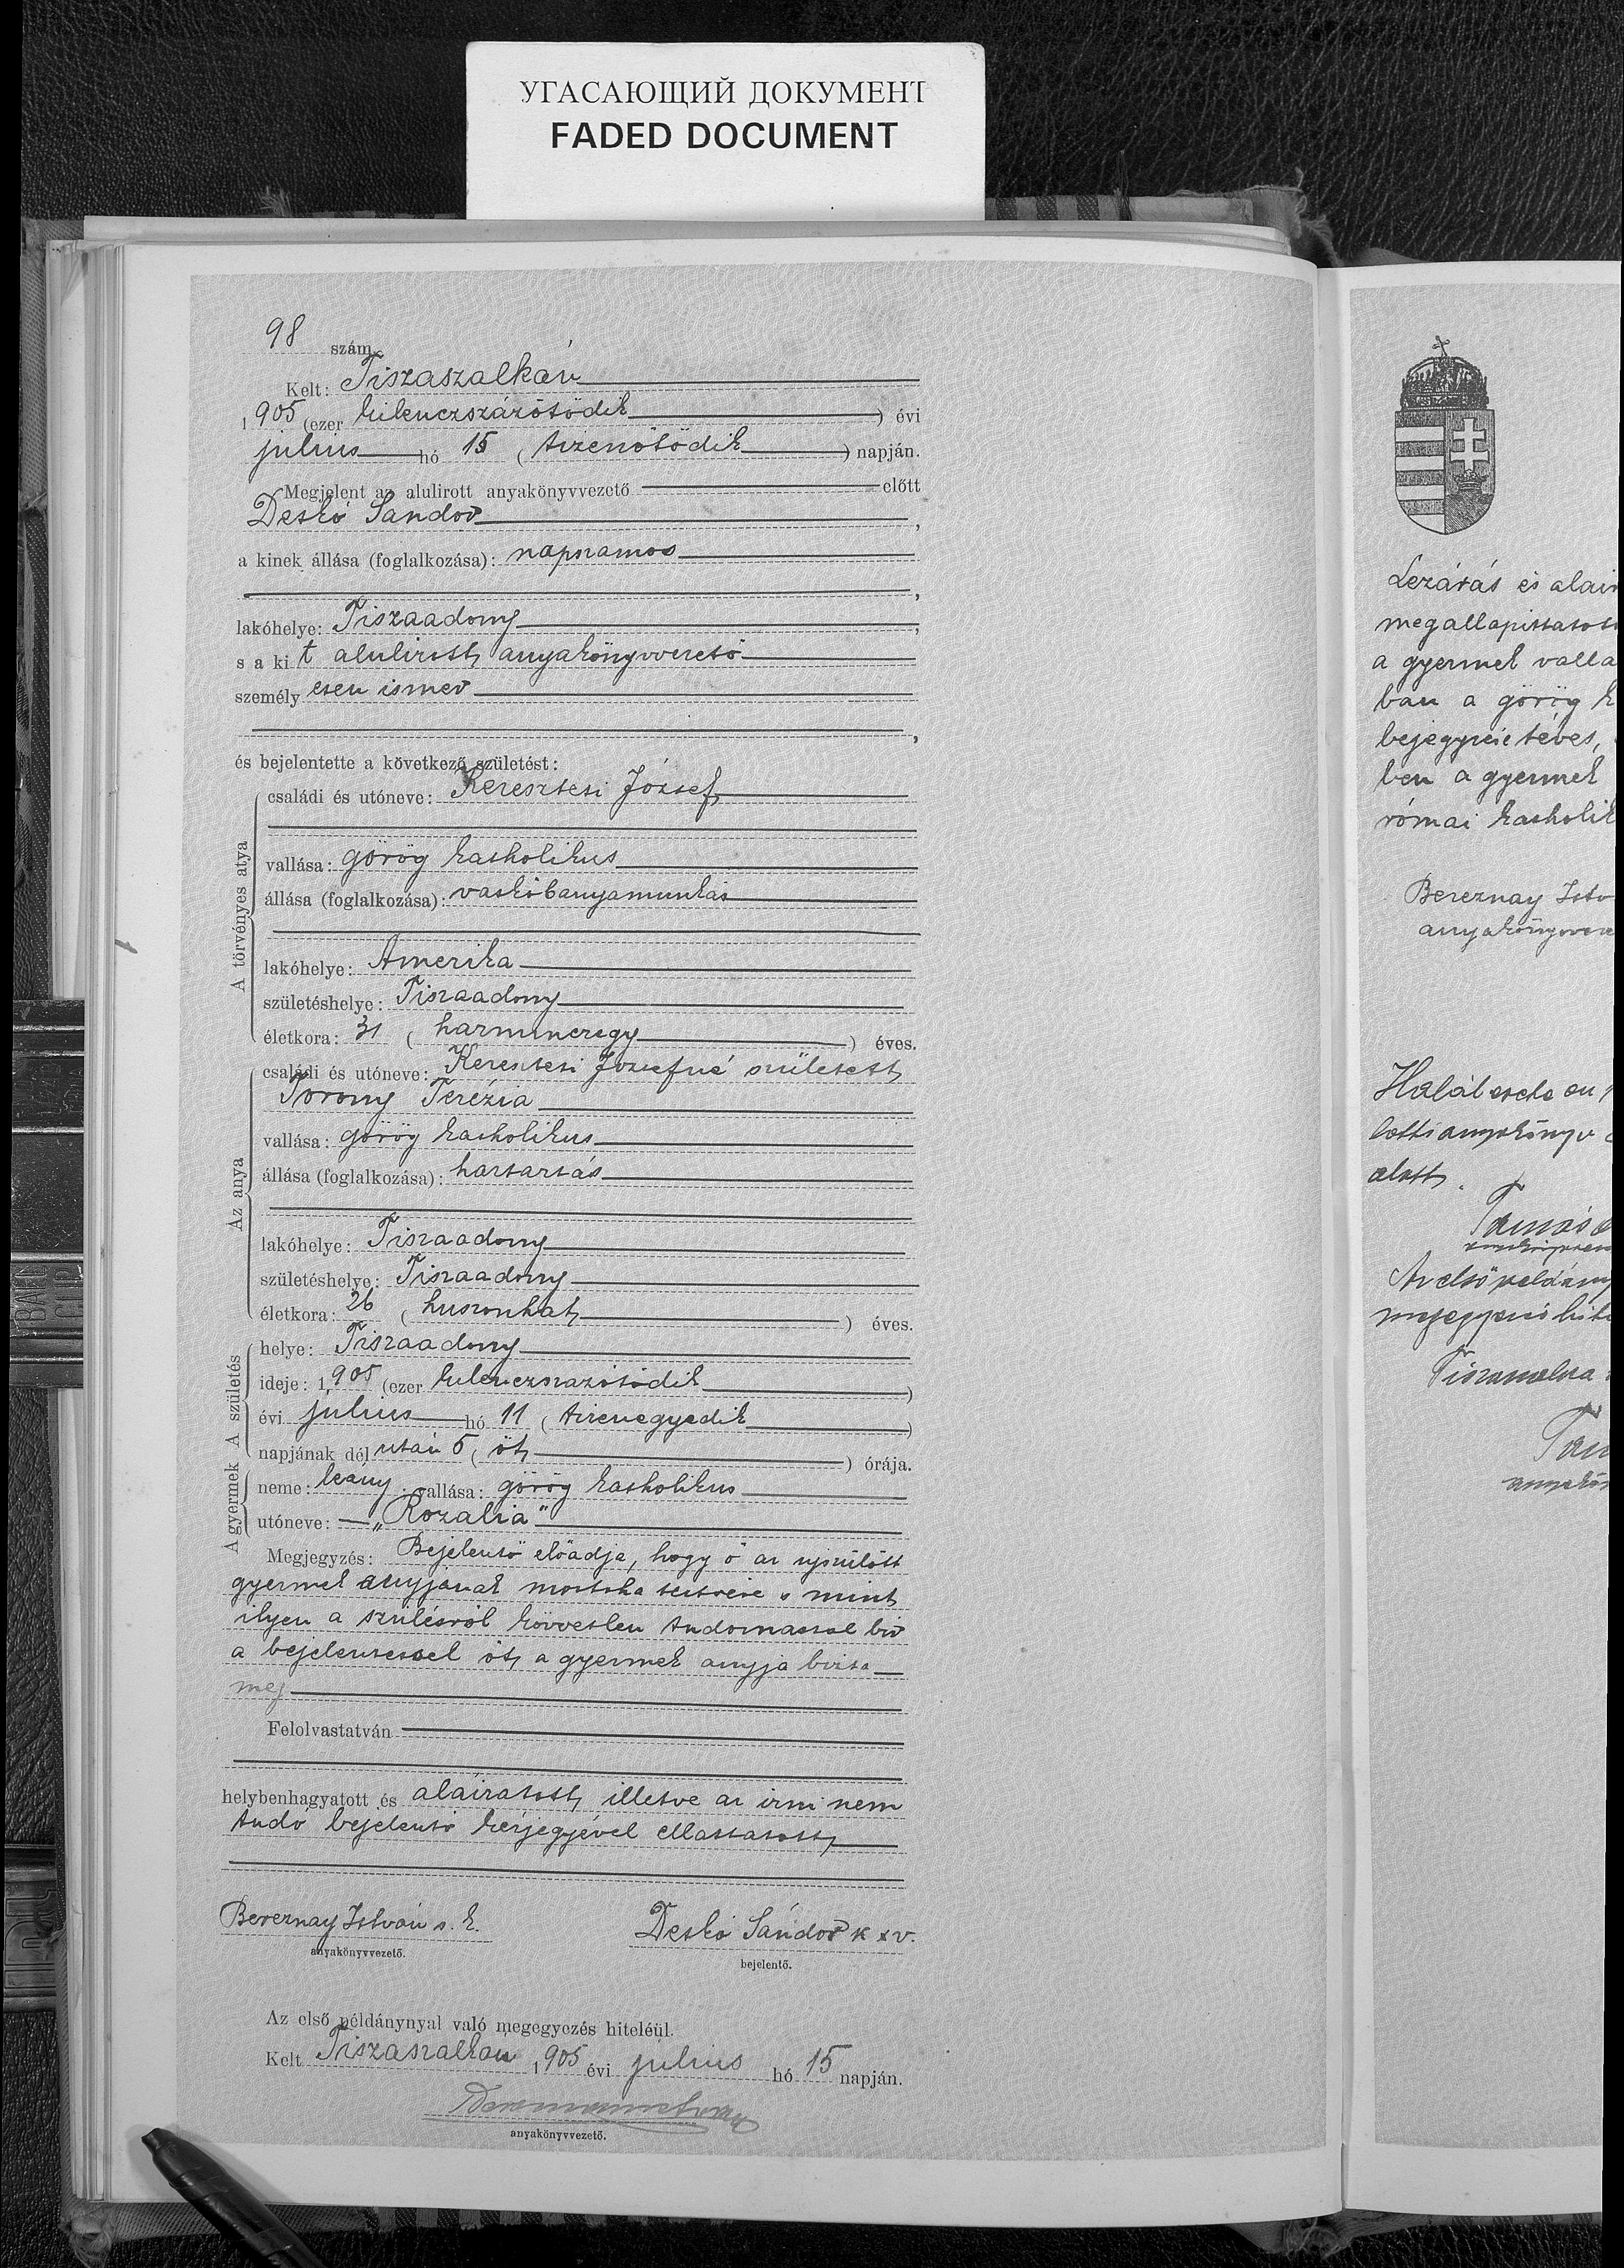 УГАСАЮЩИЙ ДОКУМЕНТ
FADED DOCUMENT
98 szám.
Kelt: Tiszaszalkán
1905 (ezer kilenczszázötödik) évi
julius hó 15 (tizenötödik) napján.
Megjelent az alulirott anyakönyvvezető előtt
Deskó Sandor,
a kinek állása (foglalkozása): napszamos
,
lakóhelye: Tiszaadony,
s a kit alulirott anyakönyvvezető
személyesen ismer
,
és bejelentette a következő születést:
A törvényes atya
családi és utóneve: Keresztesi József
vallása: görög katholikus
állása (foglalkozása): vaskőbányamunkás
lakóhelye: Amerika
születéshelye: Tiszaadony
életkora: 31 (harminczegy) éves.
Az anya
családi és utóneve: Keresztesi Józsefné született
Torony Terézia
vallása: görög katholikus
állása (foglalkozása): háztartás
lakóhelye: Tiszaadony
születéshelye: Tiszaadony
életkora: 26 (huszonhat) éves.
A születés
helye: Tiszaadony
ideje: 1,905 (ezer kilenczszázötödik)
évi julius hó 11 (tizenegyedik)
napjának dél után 5 (öt) órája.
A gyermek
neme: leány; vallása: görög katholikus
utóneve: — „Rozalia"
Megjegyzés: Bejelentő előadja, hogy ő az ujszülött
gyermek anyjanak mostoha testvére s mint
ilyen a szülésről közvetlen tudomassal bir
a bejelentessel őt a gyermek anyja bizta
meg
Felolvastatván
helybenhagyatott és aláiratott, illetve az irni nem
tudó bejelentő kézjegyével ellattatott
Bereznay István s. k.
anyakönyvvezető.
Deskó Sándor k x v.
bejelentő.
Az első példánynyal való megegyezés hiteléül.
Kelt Tiszaszalkán 1905 évi julius hó 15 napján.
anyakönyvvezető.
Lezárás és alair
megallapittatott
a gyermek valla
ban a görög k
bejegyzése téves,
ben a gyermek
római katholik
Bereznay Istv
anyakönyvveze
alatt.